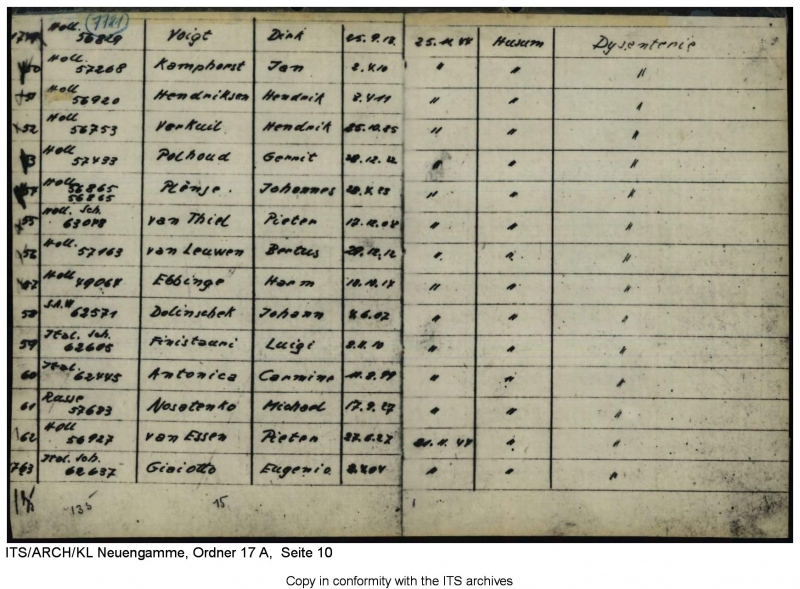 Holl. 1121
56829 Voigt Dirk 25.9.13 25.11.44 Husum Dysenterie
50 Holl.
57268 Kamphorst Jan 2.4.10 " " "
51 Holl
56920 Hendriksen Hendrik 2.4.11 " " "
52 Holl
56753 Verkuil Hendrik 25.10.25 " " "
53 Holl
57433 Polhoud Gerrit 28.12.12 " " "
Holl
56865 Johannes " " "
56865
55 Holl. Sch.
63048 van Thiel Pieter " " "
56 Holl.
57163 van Leuwen Bertus 29.12.12 " " "
57 Holl
49064 Ebbinge Harm 10.10.14 " " "
58
62571 Dolinschek Johann 4.6.07 " " "
59 Ital. Sch.
62605 Finistauri Luigi 2.4.10 " " "
60 Ital.
62445 Antonica Carmine 11.8.99 " " "
61 Russe
57683 Nosatenko Michael 17.9.27 " " "
62 Holl
56927 van Essen Pieter 27.6.27 " "
763 Ital. Sch.
62637 Giaiotto Eugenio " " "
135 15
ITS/ARCH/KL Neuengamme, Ordner 17 A, Seite 10
Copy in conformity with the ITS archives